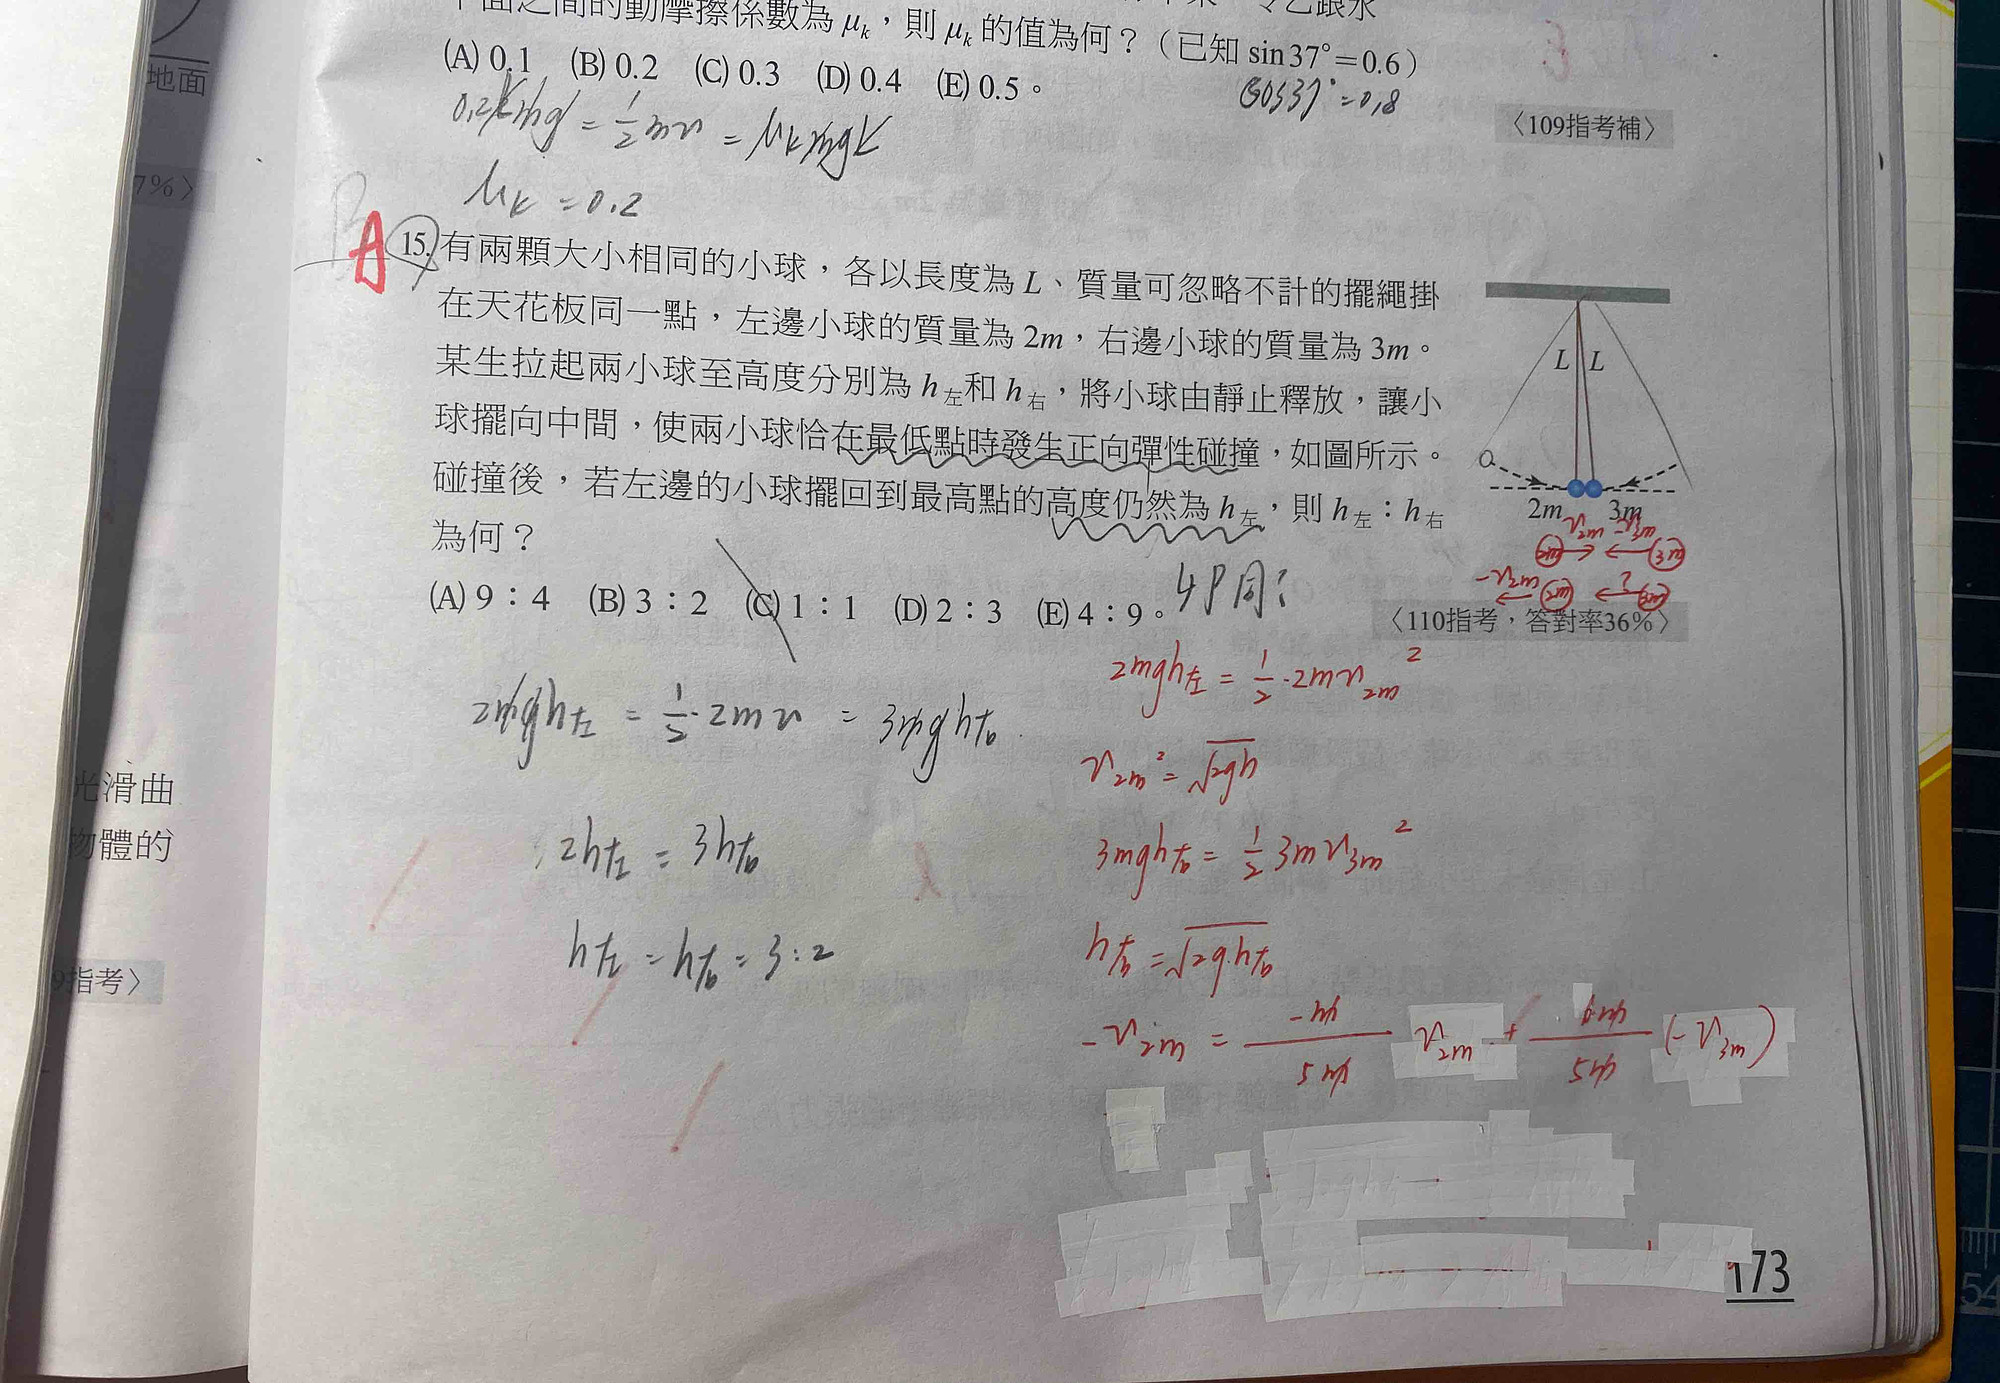 地面
7%〉
光滑曲
物體的
9指考〉
平面之間的動摩擦係數為 μk，則 μk 的值為何？（已知 sin37°=0.6）
(A) 0.1 (B) 0.2 (C) 0.3 (D) 0.4 (E) 0.5。
cos37°=0.8
〈109指考補〉
= 1/2 mv = μk mgk
μk = 0.2
A
15. 有兩顆大小相同的小球，各以長度為 L、質量可忽略不計的擺繩掛
在天花板同一點，左邊小球的質量為 2m，右邊小球的質量為 3m。
某生拉起兩小球至高度分別為 h左和 h右，將小球由靜止釋放，讓小
球擺向中間，使兩小球恰在最低點時發生正向彈性碰撞，如圖所示。
碰撞後，若左邊的小球擺回到最高點的高度仍然為 h左，則 h左：h右
為何？
(A) 9：4 (B) 3：2 (C) 1：1 (D) 2：3 (E) 4：9。
L L
2m 3m
v2m -v3m
2m 3m
-v2m ?
2m 3m
〈110指考，答對率36%〉
2mgh左 = 1/2·2mv = 3mgh右
2h左 = 3h右
h左 = h右 = 3:2
2mgh左 = 1/2·2mv2m²
v2m² = √2gh
3mgh右 = 1/2 3mv3m²
h右 = √2g·h右
-v2m = -m/5m v2m + 6m/5m (-v3m)
173
54